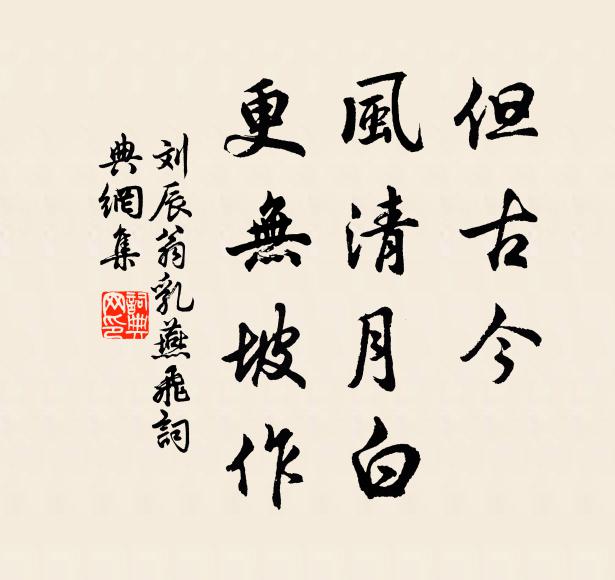 但古今
風清月白
更無坡作
刘辰翁乳燕飛詞
典網集
詞典网印